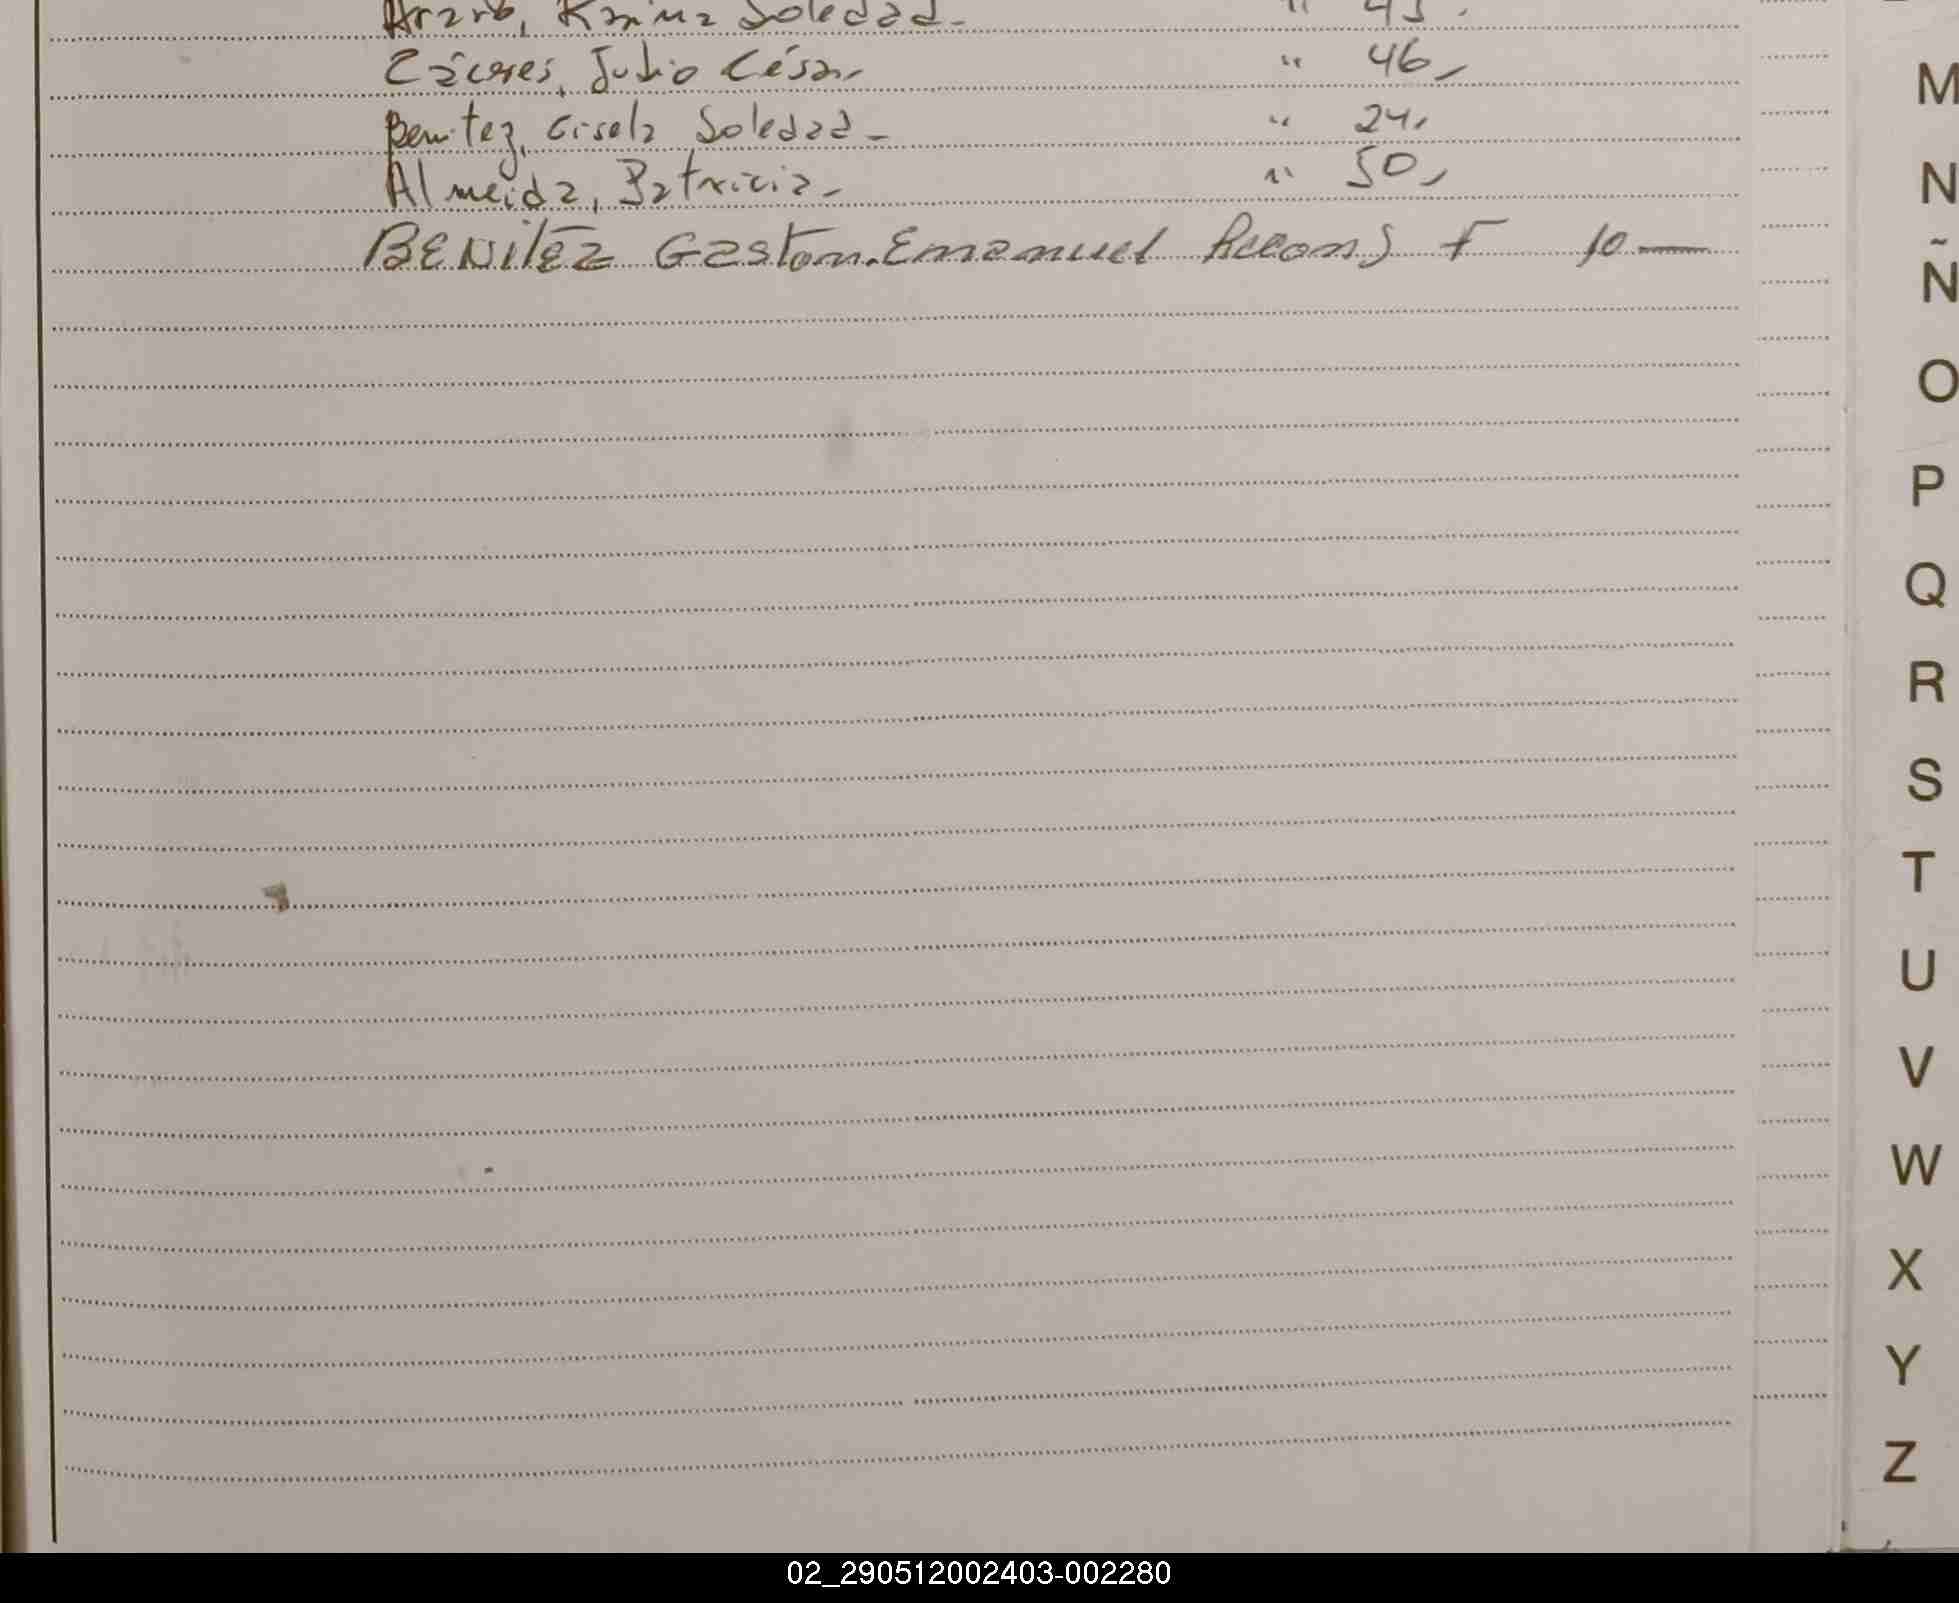 Karina Soledad - " 45.
Cáceres, Julio César - " 46,-
Benitez, Gisela Soledad - " 24,
Almeida, Patricia - " 50,-
BENITEZ Gaston Emanuel F 10 —
M
N
Ñ
O
P
Q
R
S
T
U
V
W
X
Y
Z
02_290512002403-002280